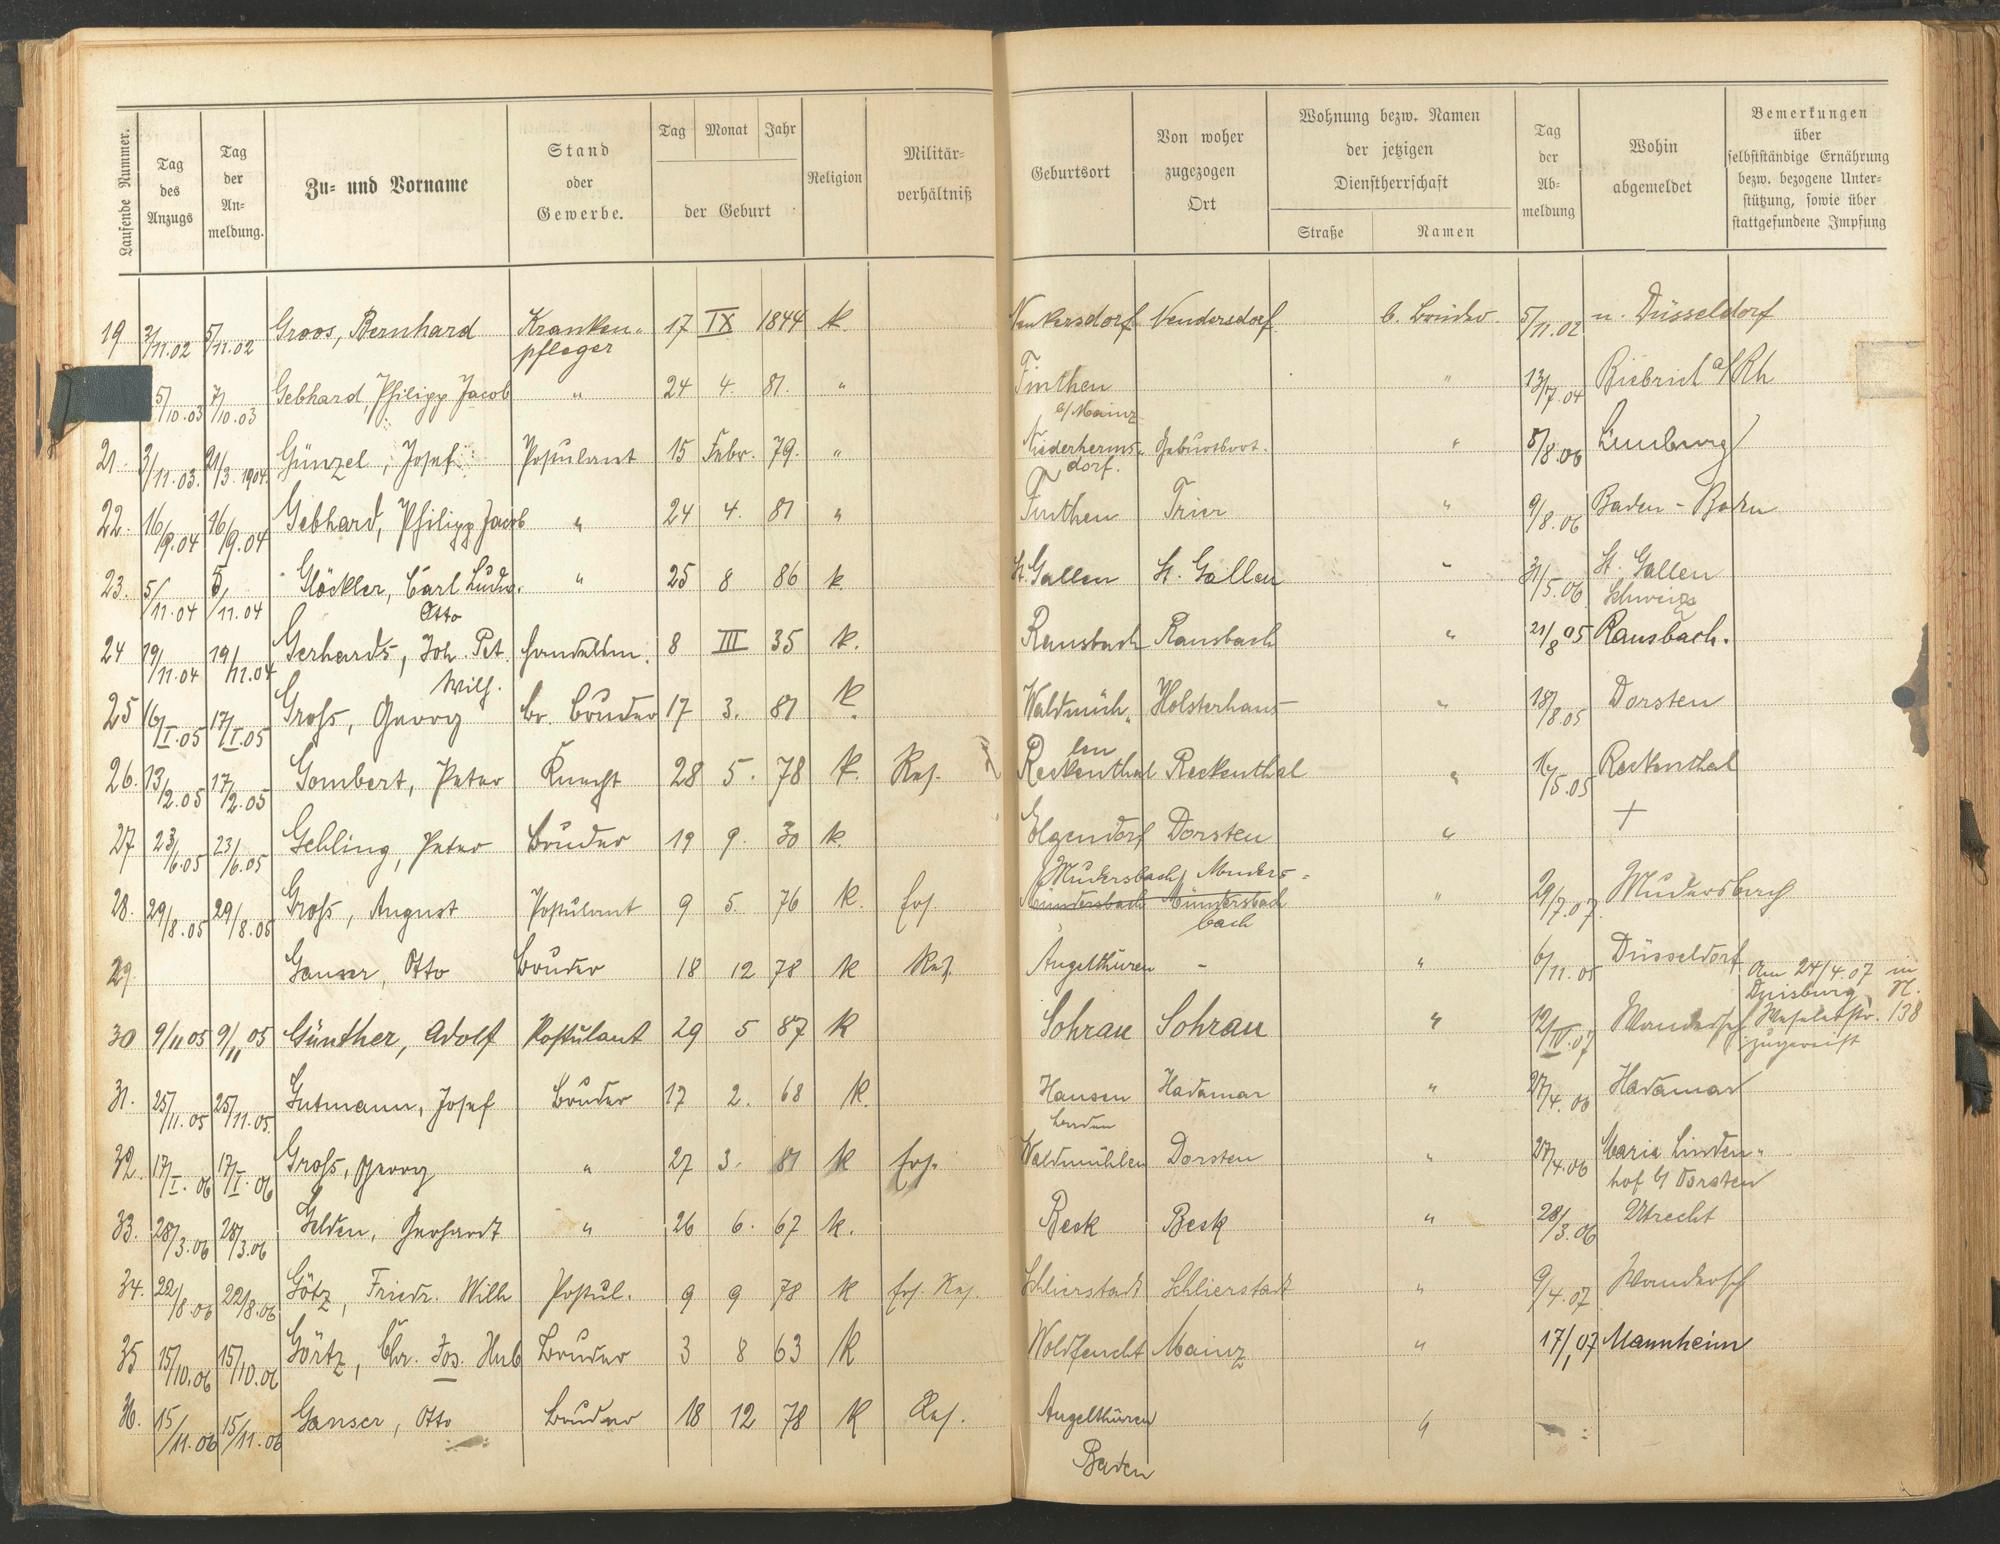 Laufende Nummer.
Tag des Anzugs
Tag der Anmeldung.
Zu- und Vorname
Stand oder Gewerbe.
Tag Monat Jahr
der Geburt
Religion
Militärverhältniß
Geburtsort
Von woher zugezogen Ort
Wohnung bezw. Namen der jetzigen Dienstherrschaft
Straße Namen
Tag der Abmeldung
Wohin abgemeldet
Bemerkungen über selbstständige Ernährung bezw. bezogene Unterstützung, sowie über stattgefundene Impfung
19 5/11.02 Groos, Bernhard Krankenpfleger 17 IX 1844 k. Vendersdorf b. Brüder. 5/11.02 n. Düsseldorf
5/10.03 7/10.03 Gebhard, Philipp Jacob " 24 4. 81. " Finthen b/Mainz " 13/7.04 Biebrich a/Rh
21. 3/11.03. 21/3.1904. Günzel, Josef Postulant 15 Febr. 79. " Niederhermsdorf. Geburtsort. " 5/8.06 Limburg
22. 16/9.04 16/9.04 Gebhard, Philipp Jacob " 24 4. 81 " Finthen Trier " 9/8.06 Baden-Baden
23. 5/11.04 5/11.04 Glöckler, Carl Ludw. Otto " 25 8 86 k. St. Gallen St. Gallen " 31/5.06. St. Gallen Schweiz
24 19/11.04 19/11.04 Gerhards, Joh. Pet. Wilh. Handelsm. 8 III 35 k. Ransbach Ransbach " 21/8 05 Ransbach.
25 16/I.05 17/I.05 Groß, Georg br. Bruder 17 3. 81 k. Waldmühlen Holsterhaus " 18/8.05 Dorsten
26. 13/2.05 17/2.05 Gombert, Peter Knecht 28 5. 78 k. Res. Reckenthal Reckenthal " 16/5.05 Reckenthal
27 23/6.05 23/6.05 Gehling, Peter Bruder 19 9. 30 k. Elgendorf Dorsten " +
28. 29/8.05 29/8.05 Groß, August Postulant 9 5. 76 k. Ers. Mudersbach Mudersbach Mündersbach Mündersbach " 29/7.07. Mudersbach
29. Ganser, Otto Bruder 18 12 78 k Res. Angelthüren - " 6/11.05 Düsseldorf
30 9/11 05 9/11 05 Günther, Adolf Postulant 29 5 87 k Sohrau Sohrau " 12/IV.07 Wandersch. Am 24/4.07 in Duisburg, Weselerstr. N. 138 zugereist
31. 25/11.05 25/11.05. Gutmann, Josef Bruder 17 2. 68 k. Hausen Hadamar " 27/4.06 Hadamar
32. 17/I.06 17/I.06 Groß, Georg " 27 3. 81 k Ers. Waldmühlen Dorsten " 27/4.06 Maria Lindenhof b/ Dorsten
33. 28/3.06 28/3.06 Gelden, Gerhardt " 26 6. 67 k. Beek Beek " 28/3.06 Utrecht
34. 22/8.06 22/8.06 Götz, Friedr. Wilh Postul. 9 9 78 k Ers. Res. Schlierstadt Schlierstadt " 9/4.07 Wandersch
35 15/10.06 15/10.06 Görtz, Chr. Jos. Hub Bruder 3 8 63 k Waldfeucht Mainz " 17/1 07 Mannheim
36. 15/11.06 15/11.06 Ganser, Otto Bruder 18 12 78 k Res. Angelthüren Baden "